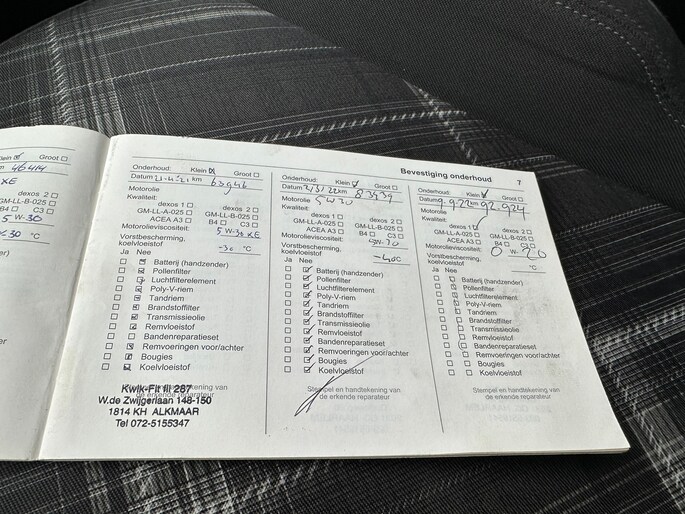 Klein Groot
46414
XE
dexos 2
GM-LL-B-025
B4 C3
5 W-30
-30 °C
Bevestiging onderhoud 7
Onderhoud: Klein Groot
Datum 21-4-'21 km 63946
Motorolie
Kwaliteit:
dexos 1 dexos 2
GM-LL-A-025 GM-LL-B-025
ACEA A3 B4 C3
Motorolieviscositeit: 5 W-30 XE
Vorstbescherming, koelvloeistof -30 °C
Ja Nee
Batterij (handzender)
Pollenfilter
Luchtfilterelement
Poly-V-riem
Tandriem
Brandstoffilter
Transmissieolie
Remvloeistof
Bandenreparatieset
Remvoeringen voor/achter
Bougies
Koelvloeistof
Kwik-Fit fil 267
W.de Zwijgerlaan 148-150
1814 KH ALKMAAR
Tel 072-5155347
Onderhoud: Klein Groot
Datum km 83939
Motorolie 5W30
Kwaliteit:
dexos 1 dexos 2
GM-LL-A-025 GM-LL-B-025
ACEA A3 B4 C3
Motorolieviscositeit:
Vorstbescherming,
koelvloeistof -40C
Ja Nee
Batterij (handzender)
Pollenfilter
Luchtfilterelement
Poly-V-riem
Tandriem
Brandstoffilter
Transmissieolie
Remvloeistof
Bandenreparatieset
Remvoeringen voor/achter
Bougies
Koelvloeistof
Stempel en handtekening van
de erkende reparateur
Onderhoud: Klein Groot
Datum 9.9.22 km 92.924
Motorolie
Kwaliteit:
dexos 1 dexos 2
GM-LL-A-025 GM-LL-B-025
ACEA A3 B4 C3
Motorolieviscositeit: 0 W-20
Vorstbescherming,
koelvloeistof °C
Ja Nee
Batterij (handzender)
Pollenfilter
Luchtfilterelement
Poly-V-riem
Tandriem
Brandstoffilter
Transmissieolie
Remvloeistof
Bandenreparatieset
Remvoeringen voor/achter
Bougies
Koelvloeistof
Stempel en handtekening van
de erkende reparateur